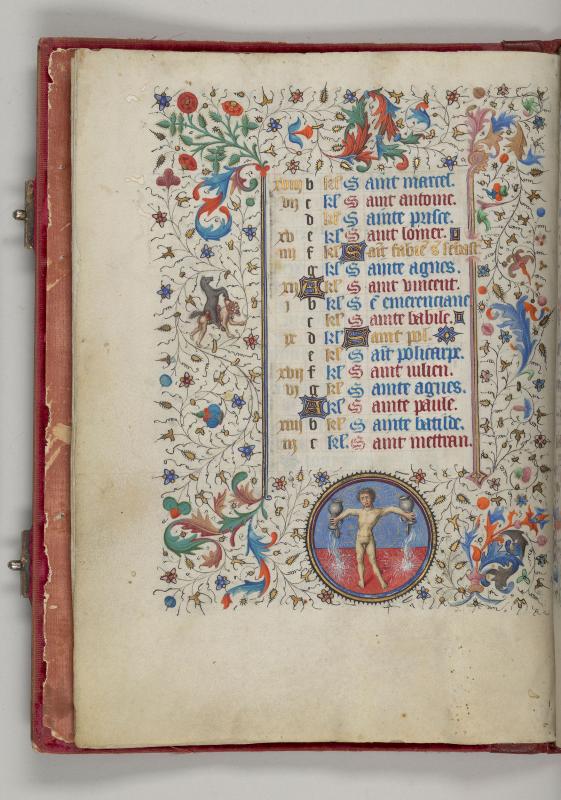 xviii b kl' S aint marcel.
vii c kl' S aint antoine.
d kl' S ainte prisce.
xv e kl' S aint lomer.
iiii f kl' Saīt fabiē s sebast
g kl' S ainte agnes.
xii A kl' S aint vincent.
i b kl' S ͤ emerenciane
c kl' S ainte babile.
ix d kl' Saint pol.
e kl' S aīt policarpe.
xvii f kl' S aint iulien.
vi g kl' S ainte agnes.
A kl' S ainte paule.
xiiii b kl' S ainte batilde.
iii c kl'. S aint mettran.